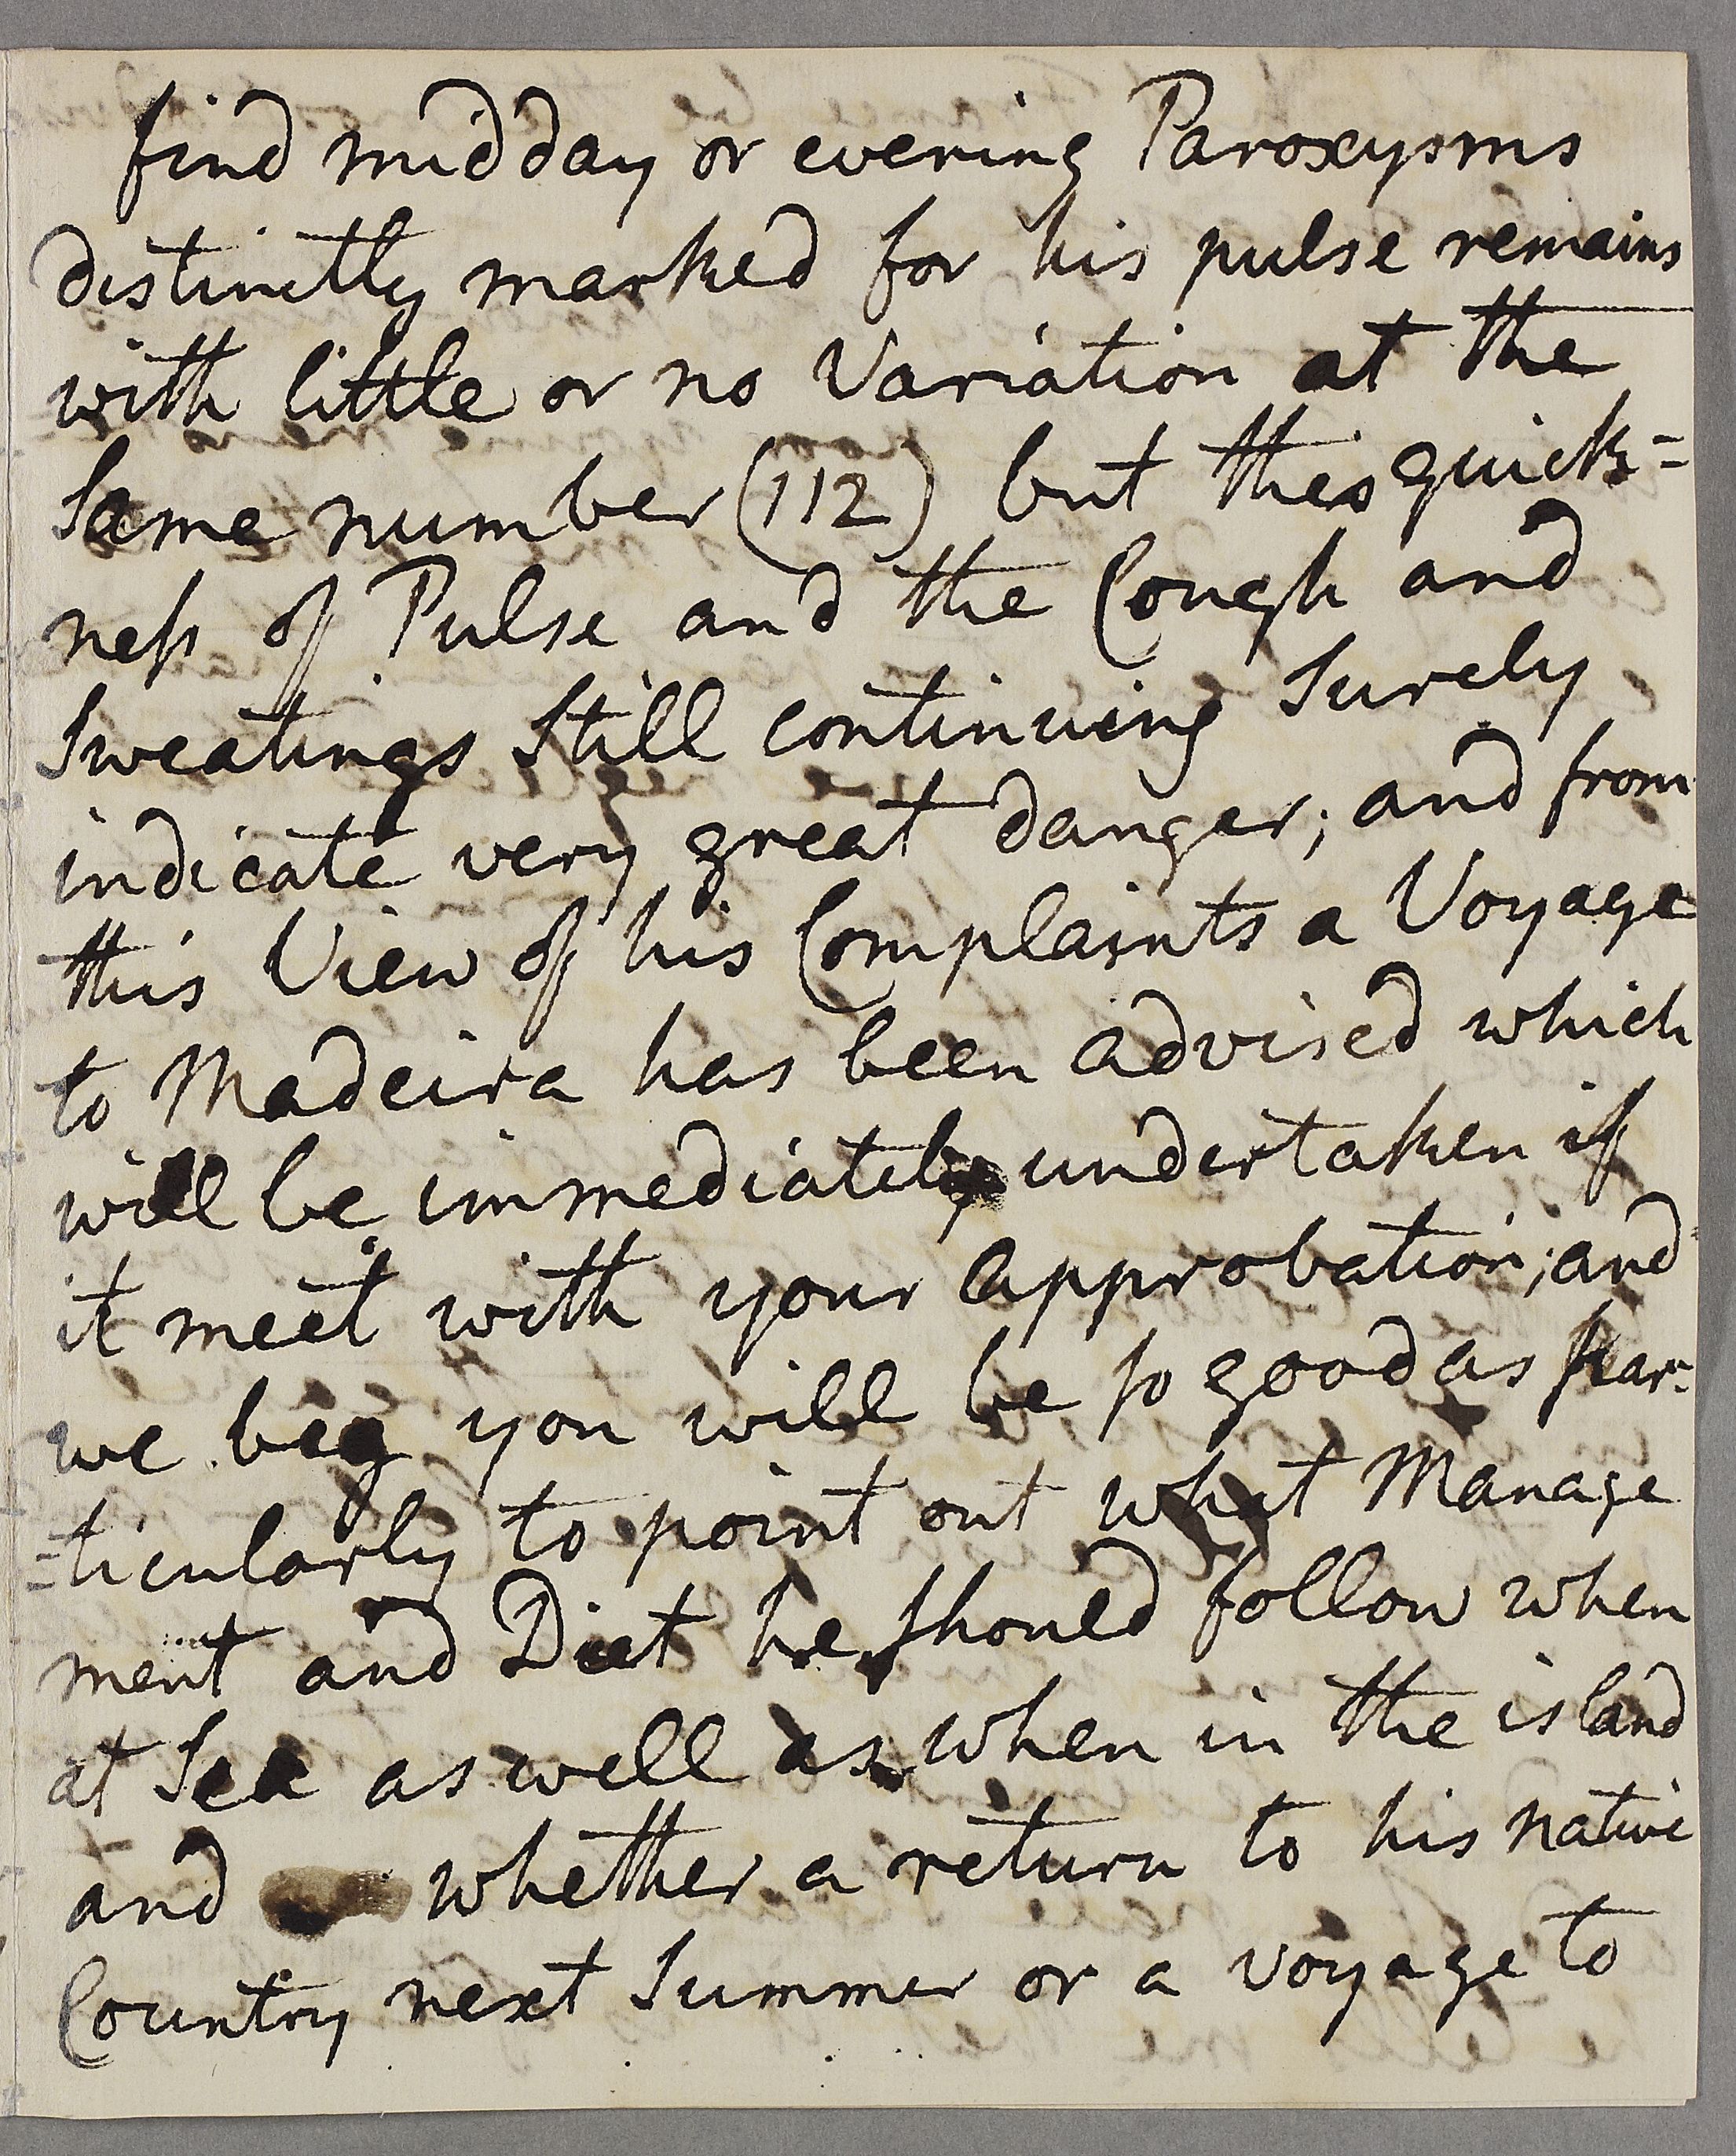 find midday or evening Paroxysms
distinctly marked for his pulse remains
with little or no Variation at the
Same number (112) but this quick=
ness of Pulse and the Cough and
Sweatings Still continuing Surely
indicate very great danger; and from
this View of his Complaints a Voyage
to Madeira has been advised which
will be immediately undertaken if
it meet with your approbation; and
we beg you will be so good as par=
=ticularly to point out what Manage
ment and Diet he should follow when
at Sea as well as when in the island
and whether a return to his native
Country next Summer or a voyage to